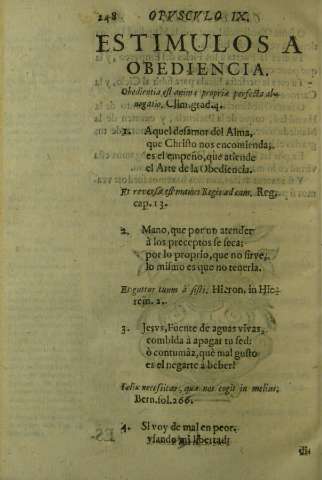 248 OPVSCVLO IX.
ESTIMULOS A
OBEDIENCIA.
Obedientia, est animæ propriæ perfecta ab-
negatio. Clim. grad. 4.
1. Aquel desamor del Alma,
que Christo nos encomienda,
es el empeño, que atiende
el Arte de la Obediencia.
Et reversa est manus Regis ad eum. Reg.
cap. 13.
2. Mano, que por no atender
à los preceptos se seca;
por lo proprio, que no sirve,
lo mismo es que no tenerla.
Et guttur tuum à siti. Hieron. in Hie-
rem. 2.
3. Jesvs, Fuente de aguas vivas,
combida à apagar tu sed:
ò contumàz, què mal gusto
es el negarte à beber!
Fælix necessitas, quæ nos cogit in melius.
Bern. fol. 266.
4. SI voy de mal en peor,
vsando mi libertad;